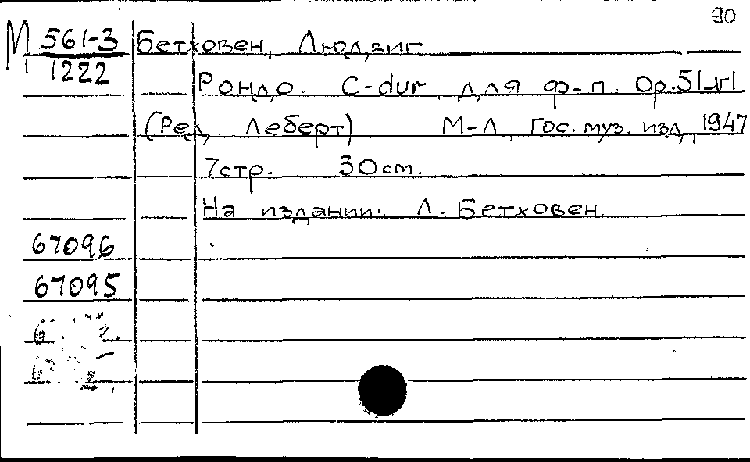 90
М 561-3 Бетховен, Людвиг
1222 Рондо. C-dur для ф-п. Ор. 51 №1
(Ред. Леберт) М-Л, Гос. муз. изд, 1947
7стр. 30см.
На издании: Л. Бетховен.
67096
67095